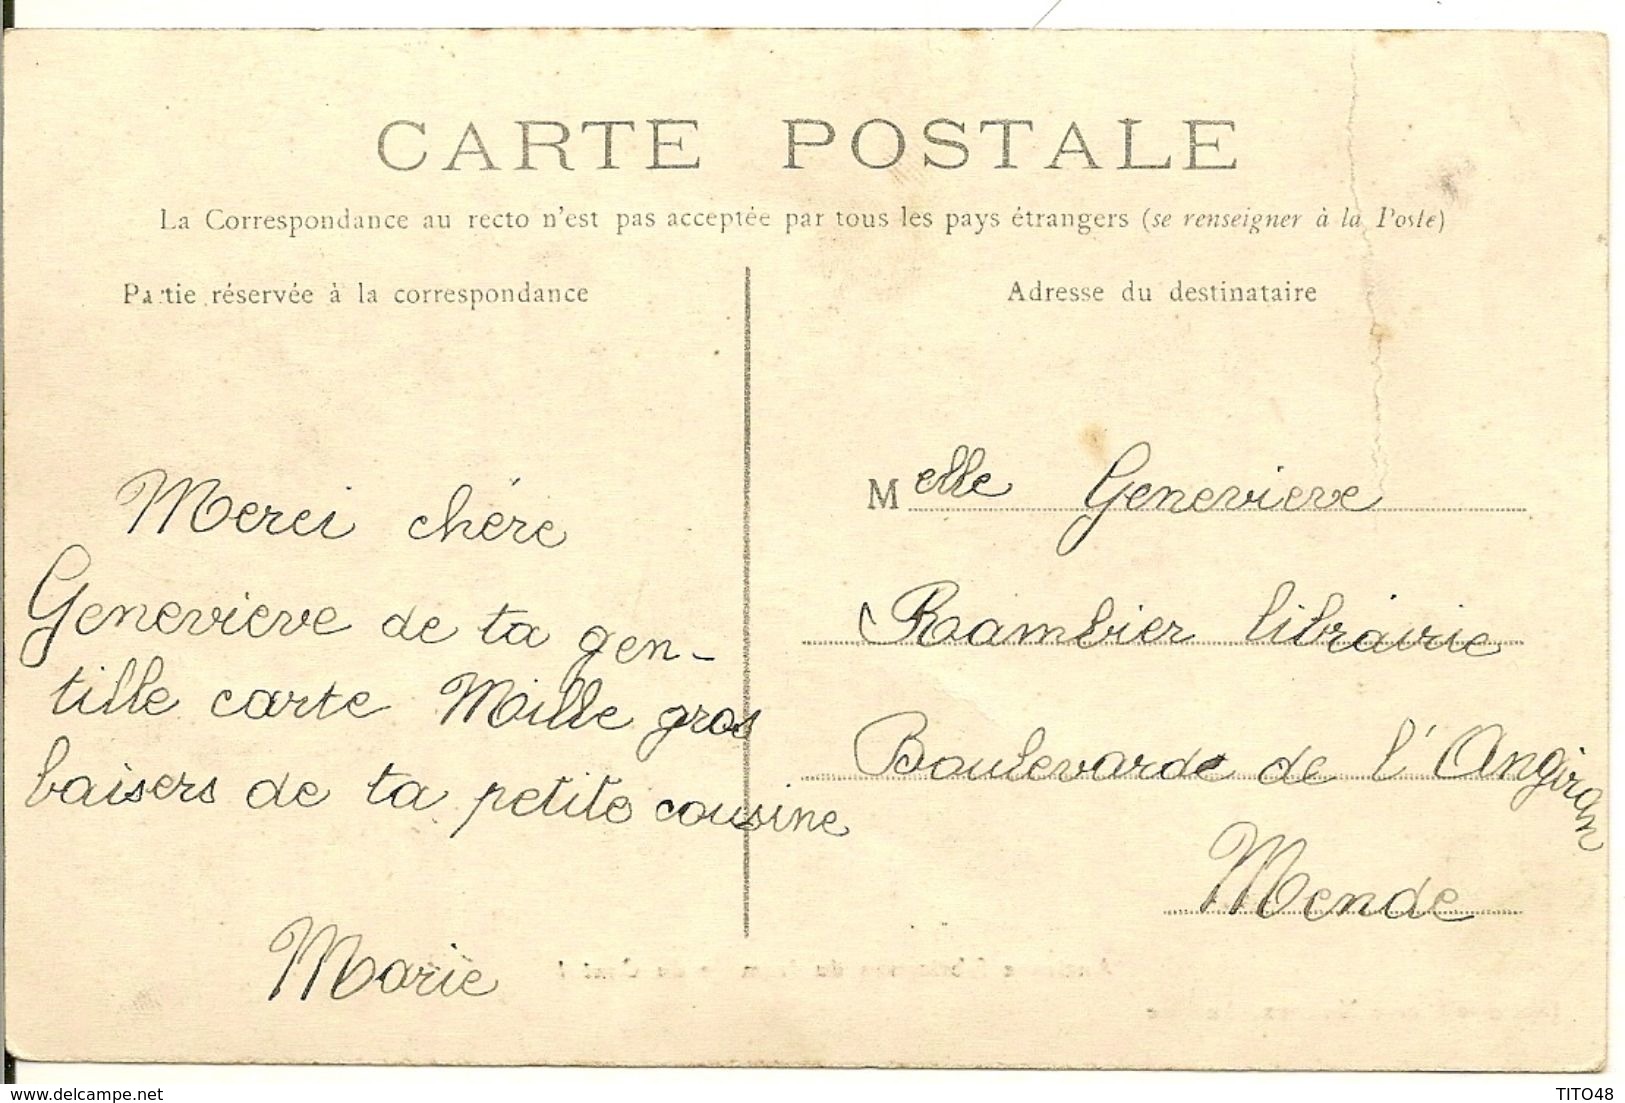 CARTE POSTALE
La Correspondance au recto n'est pas acceptée par tous les pays étrangers (se renseigner à la Poste)
Partie réservée à la correspondance
Merci chére
Genevieve de ta gen-
tille carte Mille gros
baisers de ta petite cousine
Marie
Adresse du destinataire
Melle Genevieve
Rambier librairie
Boulevard de l'Angiran
Mende
TITO48